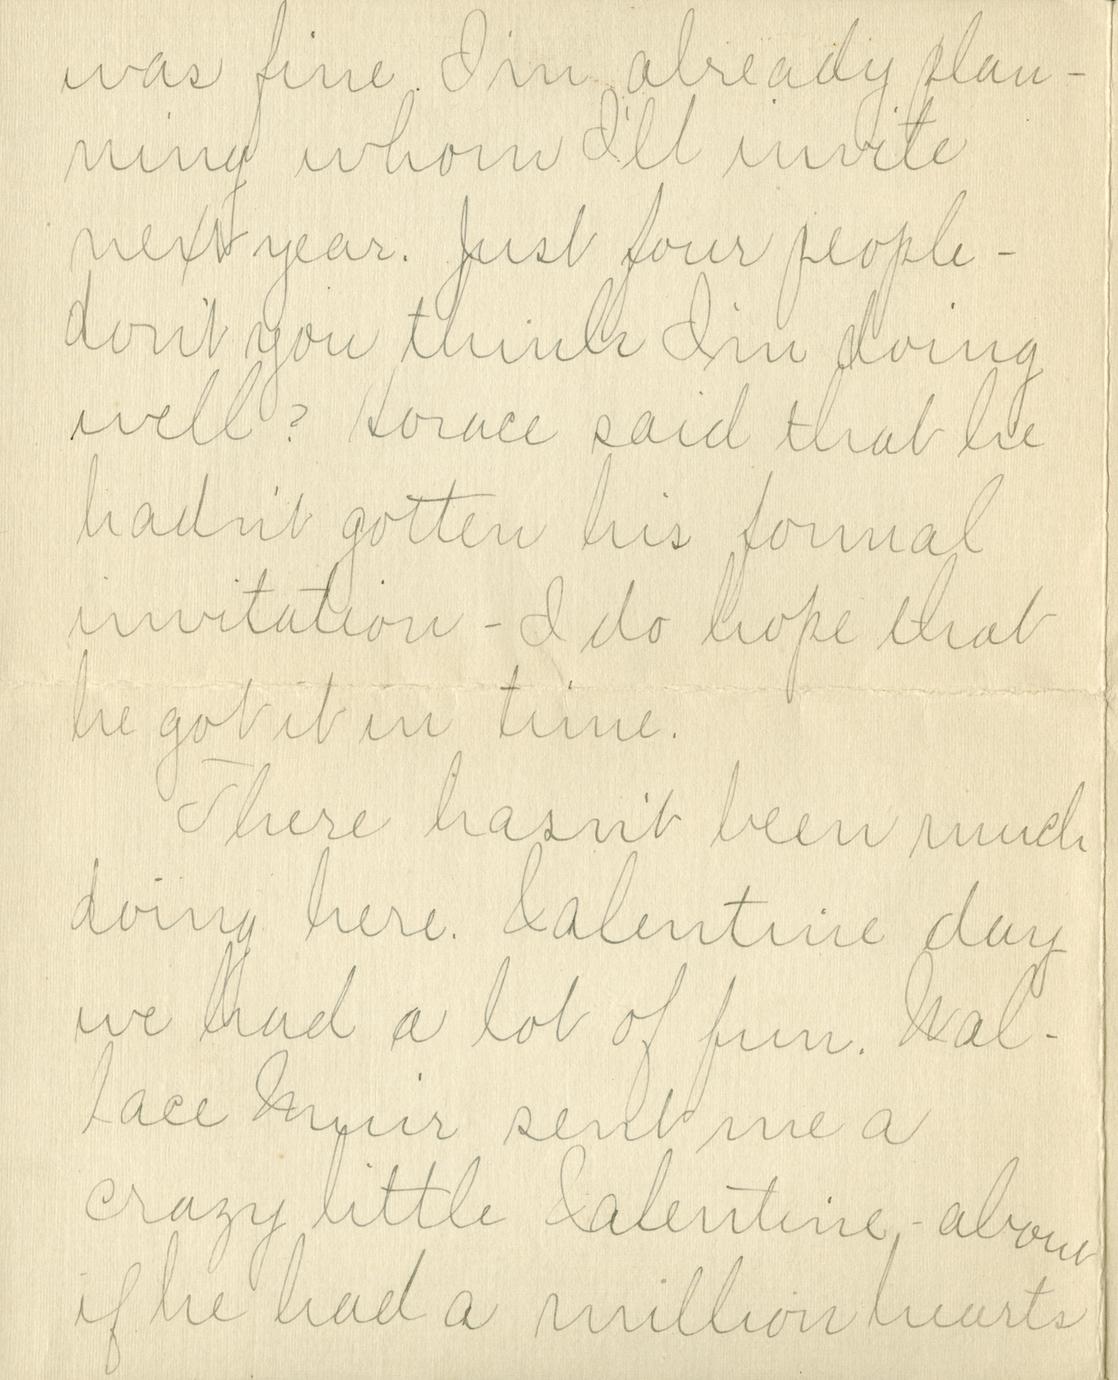 was fine. I'm already plan-
ning whom I'll invite
next year. Just four people -
don't you think I'm doing
well? Horace said that he
hadn't gotten his formal
invitation - I do hope that
he got it in time.
There hasn't been much
doing here. Valentine day
we had a lot of fun. Wal-
lace Muir sent me a
crazy little Valentine, - about
if he had a million hearts